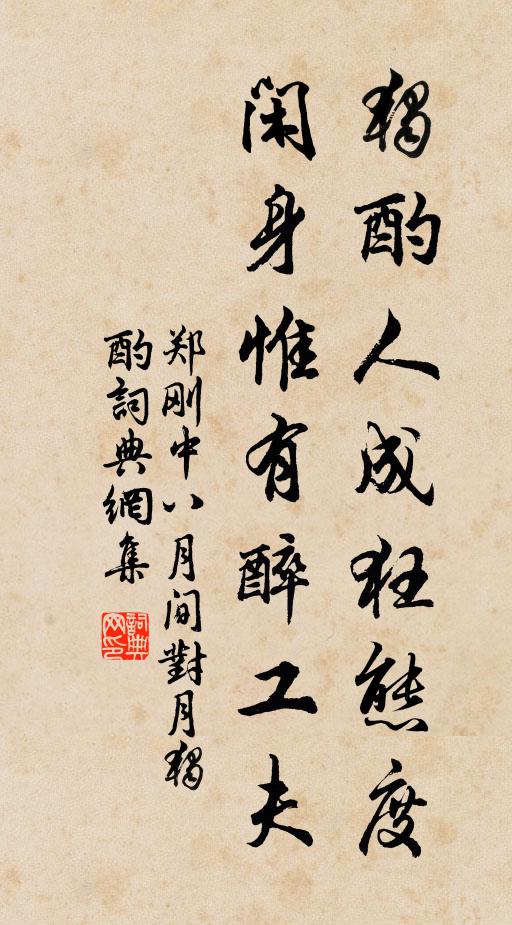 獨酌人成狂態度
閑身惟有醉工夫
郑刚中八月间對月獨
酌詞典網集
詞典
网印